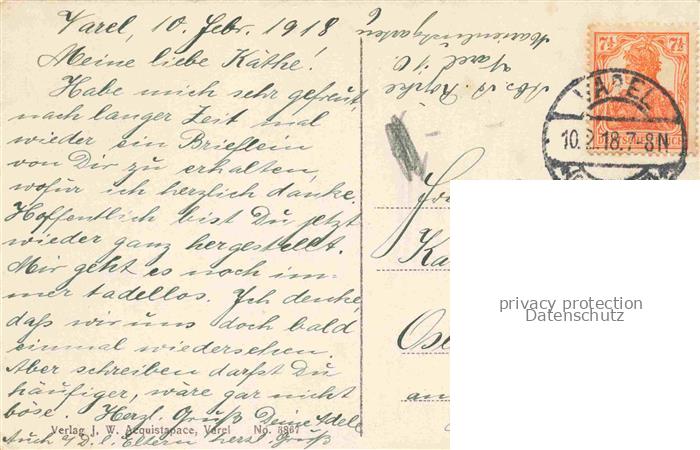 Varel, 10. Febr. 1918
Meine liebe Käthe!
Habe mich sehr gefreut,
nach langer Zeit mal
wieder ein Brieflein
von Dir zu erhalten,
wofür ich herzlich danke.
Hoffentlich bist Du jetzt
wieder ganz hergestellt.
Mir geht es noch im-
mer tadellos. Ich denke,
daß wir uns doch bald
einmal wiedersehen.
Aber schreiben darfst Du
häufiger, wäre gar nicht
böse. Herzl. Gruß Deine Adele
Verlag J. W. Acquistapace, Varel No. 8867
Auch a/D. l. Eltern herzl. Gruß
Varel i/O
7½ 7½
VAREL
10.2.18.7-8N
Ka
an
privacy protection
Datenschutz